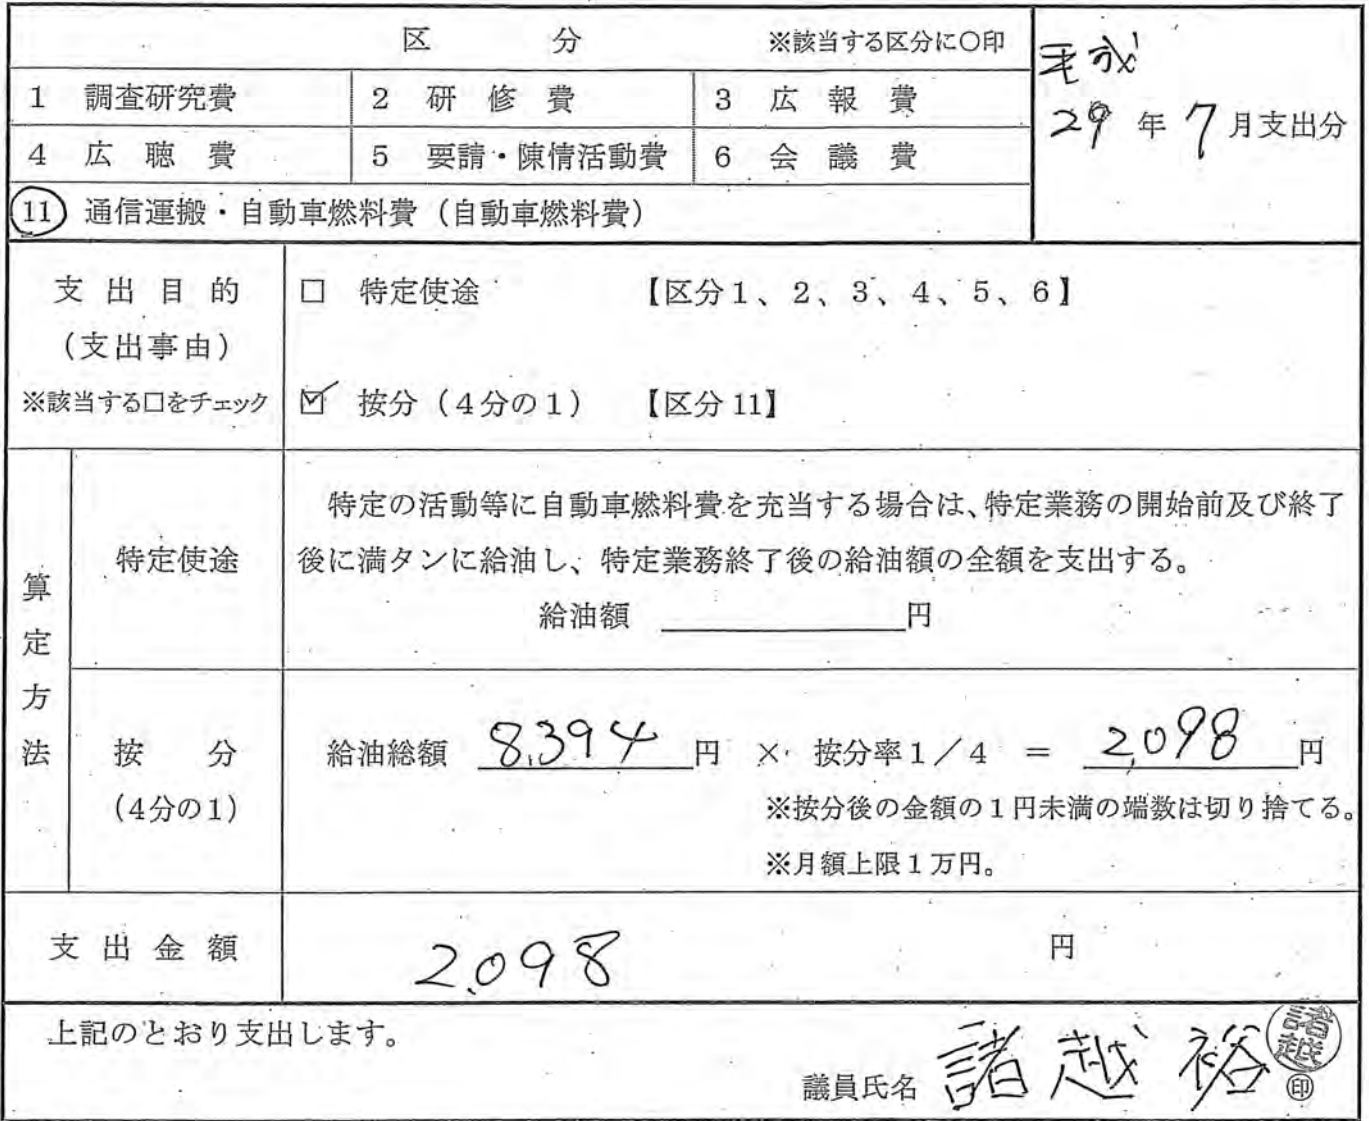 区 分 ※該当する区分に〇印
平成
29 年 7 月支出分
1 調査研究費 2 研 修 費 3 広 報 費
4 広 聴 費 5 要請・陳情活動費 6 会 議 費
11 通信運搬・自動車燃料費（自動車燃料費）
支 出 目 的
（支出事由）
※該当する口をチェック
□ 特定使途 【区分１、２、３、４、５、６】
☑ 按分（４分の１） 【区分 11】
算定方法
特定使途
特定の活動等に自動車燃料費を充当する場合は、特定業務の開始前及び終了
後に満タンに給油し、特定業務終了後の給油額の全額を支出する。
給油額 ＿＿＿＿円
按 分
（4分の1）
給油総額 8,394 円 × 按分率１／４ ＝ 2,098 円
※按分後の金額の１円未満の端数は切り捨てる。
※月額上限１万円。
支 出 金 額 2,098 円
上記のとおり支出します。
議員氏名 諸越 裕 諸越 ㊞